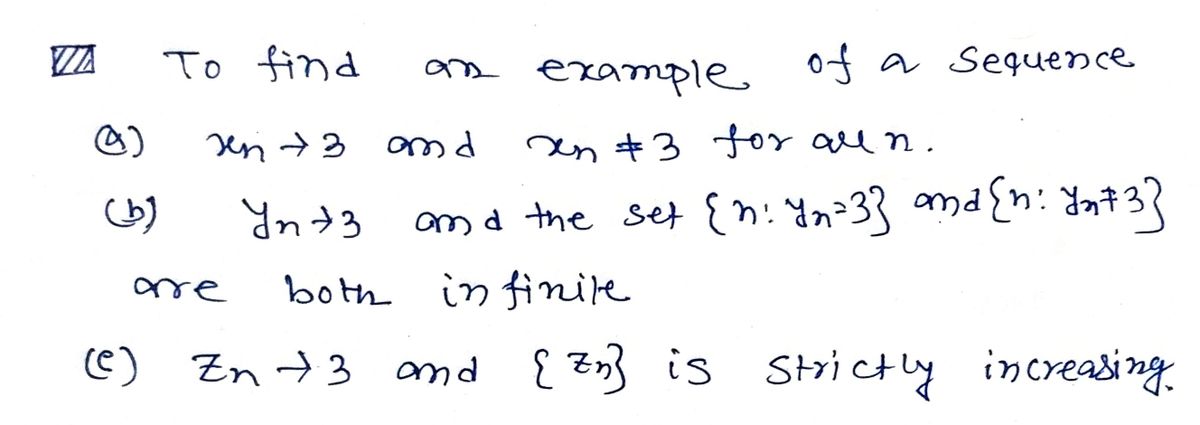 To find an example of a sequence
(a) xn → 3 and xn ≠ 3 for all n.
(b) yn → 3 and the set {n: yn=3} and {n: yn≠3}
are both infinite
(c) zn → 3 and {zn} is strictly increasing.